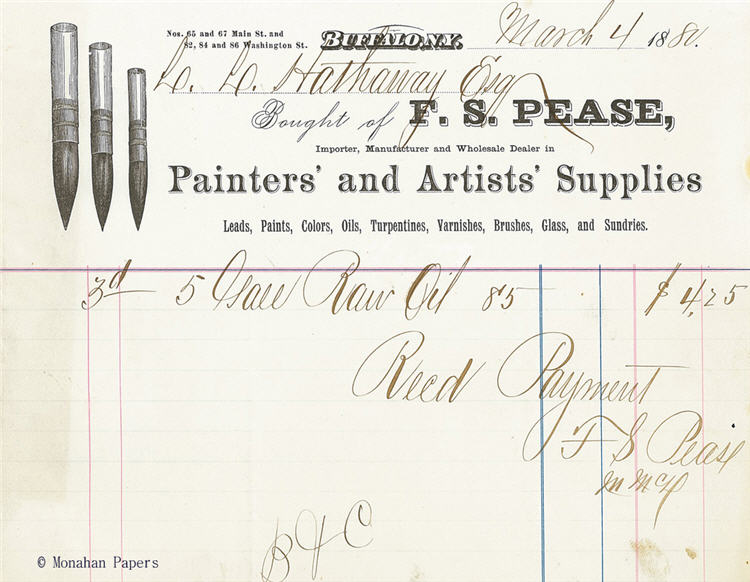 Nos. 65 and 67 Main St. and
82, 84 and 86 Washington St.
BUFFALO, N.Y. March 4 1880.
L. L. Hathaway Esq
Bought of F. S. PEASE,
Importer, Manufacturer and Wholesale Dealer in
Painters' and Artists' Supplies
Leads, Paints, Colors, Oils, Turpentines, Varnishes, Brushes, Glass, and Sundries.
3d 5 Galls Raw Oil 85 $ 4,25
Recd Payment
F S Pease
© Monahan Papers